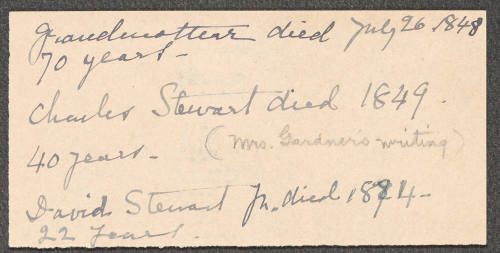 Grandmother died July 26. 1848
70 years -
Charles Stewart died 1849.
(Mrs. Gardner's writing)
40 years -
David Stewart Jr. died 1874 -
22 years.